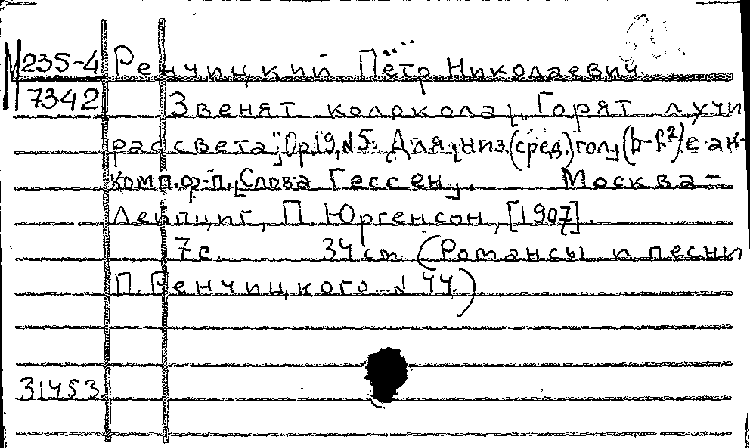 М 235-4 Ренчицкий Пётр Николаевич
7342 Звенят колокола, Горят лучи
рассвета", Op 19, N5. Для низ.(сред) гол. (b-f²) с ак-
комп. ф-п. [Слова Гессен]. Москва -
Лейпциг, П. Юргенсон, [1907].
7 с. 34 см (Романсы и песни
П. Ренчицкого N 44)
31453